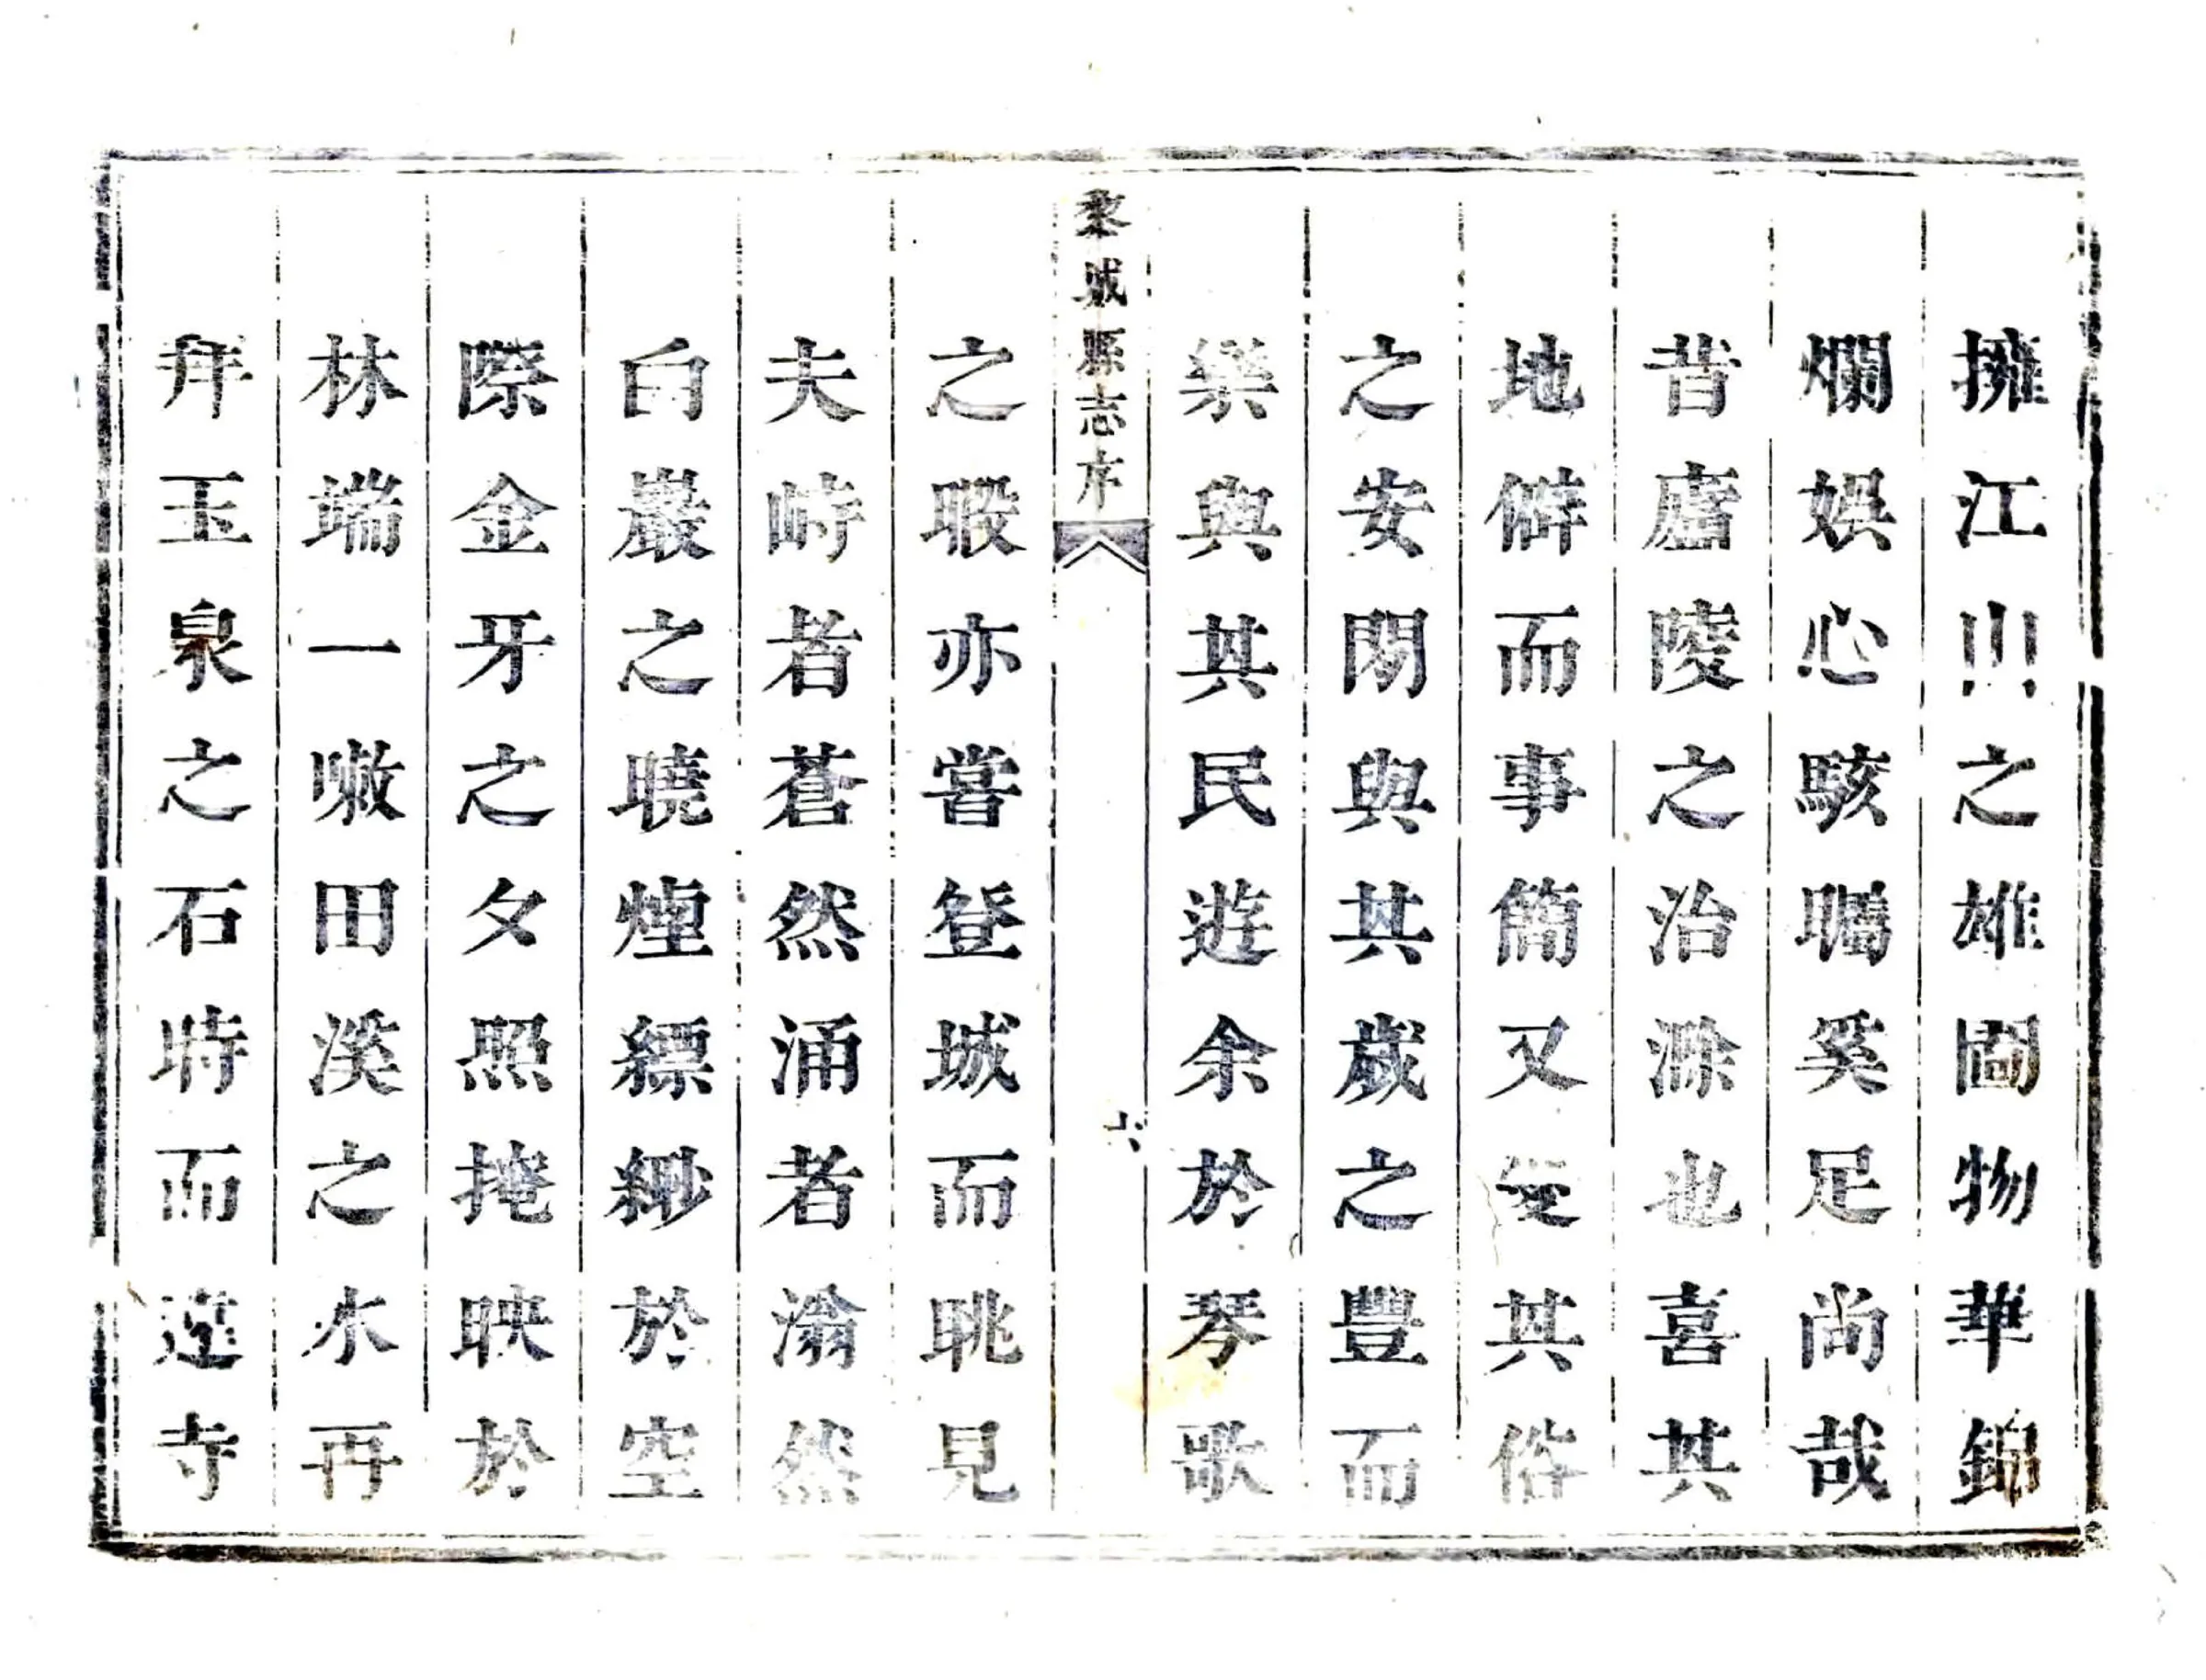 擁江山之雄圖物華錦
爛娯心駭矚奚足尚哉
昔廬陵之治滁也喜其
地僻而事簡又愛其俗
之安閒與其歲之豐而
樂與其民遊余於琴歌
黎城縣志序
六
之暇亦嘗登城而眺見
夫峙者蒼然涌者滃然
白巖之曉煙縹緲於空
際金牙之夕照掩映於
林端一漱田溪之水再
拜玉泉之石時而遠寺